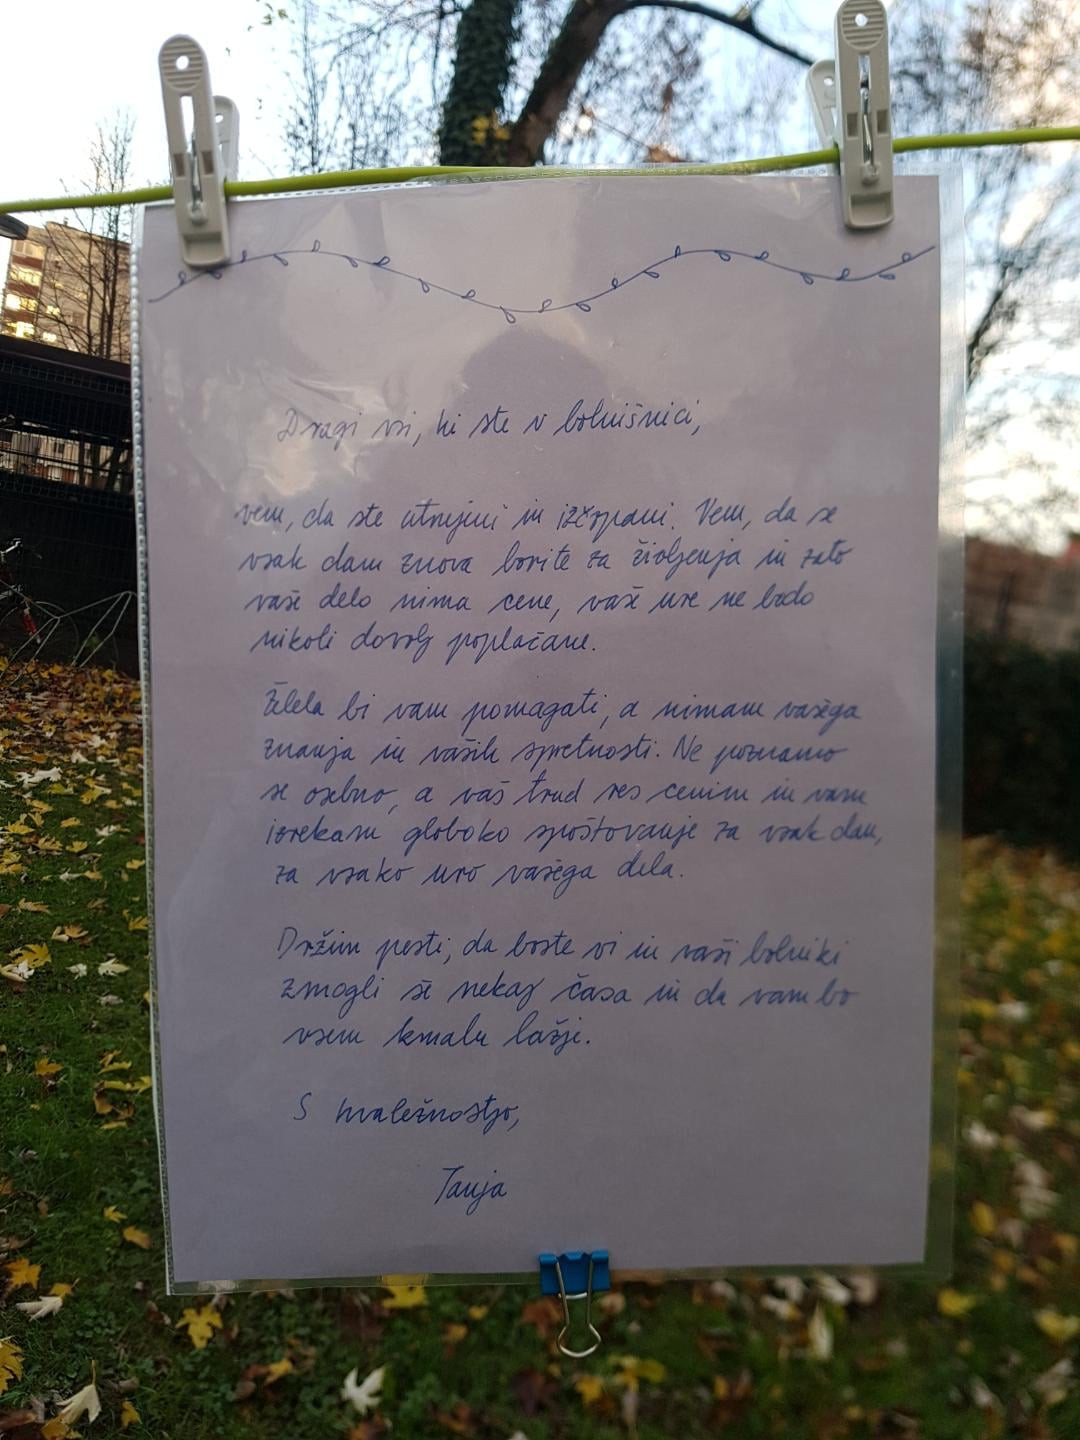 Dragi vsi, ki ste v bolnišnici,
vem, da ste utrujeni in izčrpani. Vem, da se
vsak dan znova borite za življenja in zato
vaše delo nima cene, vaše ure ne bodo
nikoli dovolj poplačane.
Želela bi vam pomagati, a nimam vašega
znanja in vaših spretnosti. Ne poznamo
se osebno, a vaš trud res cenim in vam
izrekam globoko spoštovanje za vsak dan,
za vsako uro vašega dela.
Držim pesti, da boste vi in vaši bolniki
zmogli še nekaj časa in da vam bo
vsem kmalu lažje.
S hvaležnostjo,
Tanja